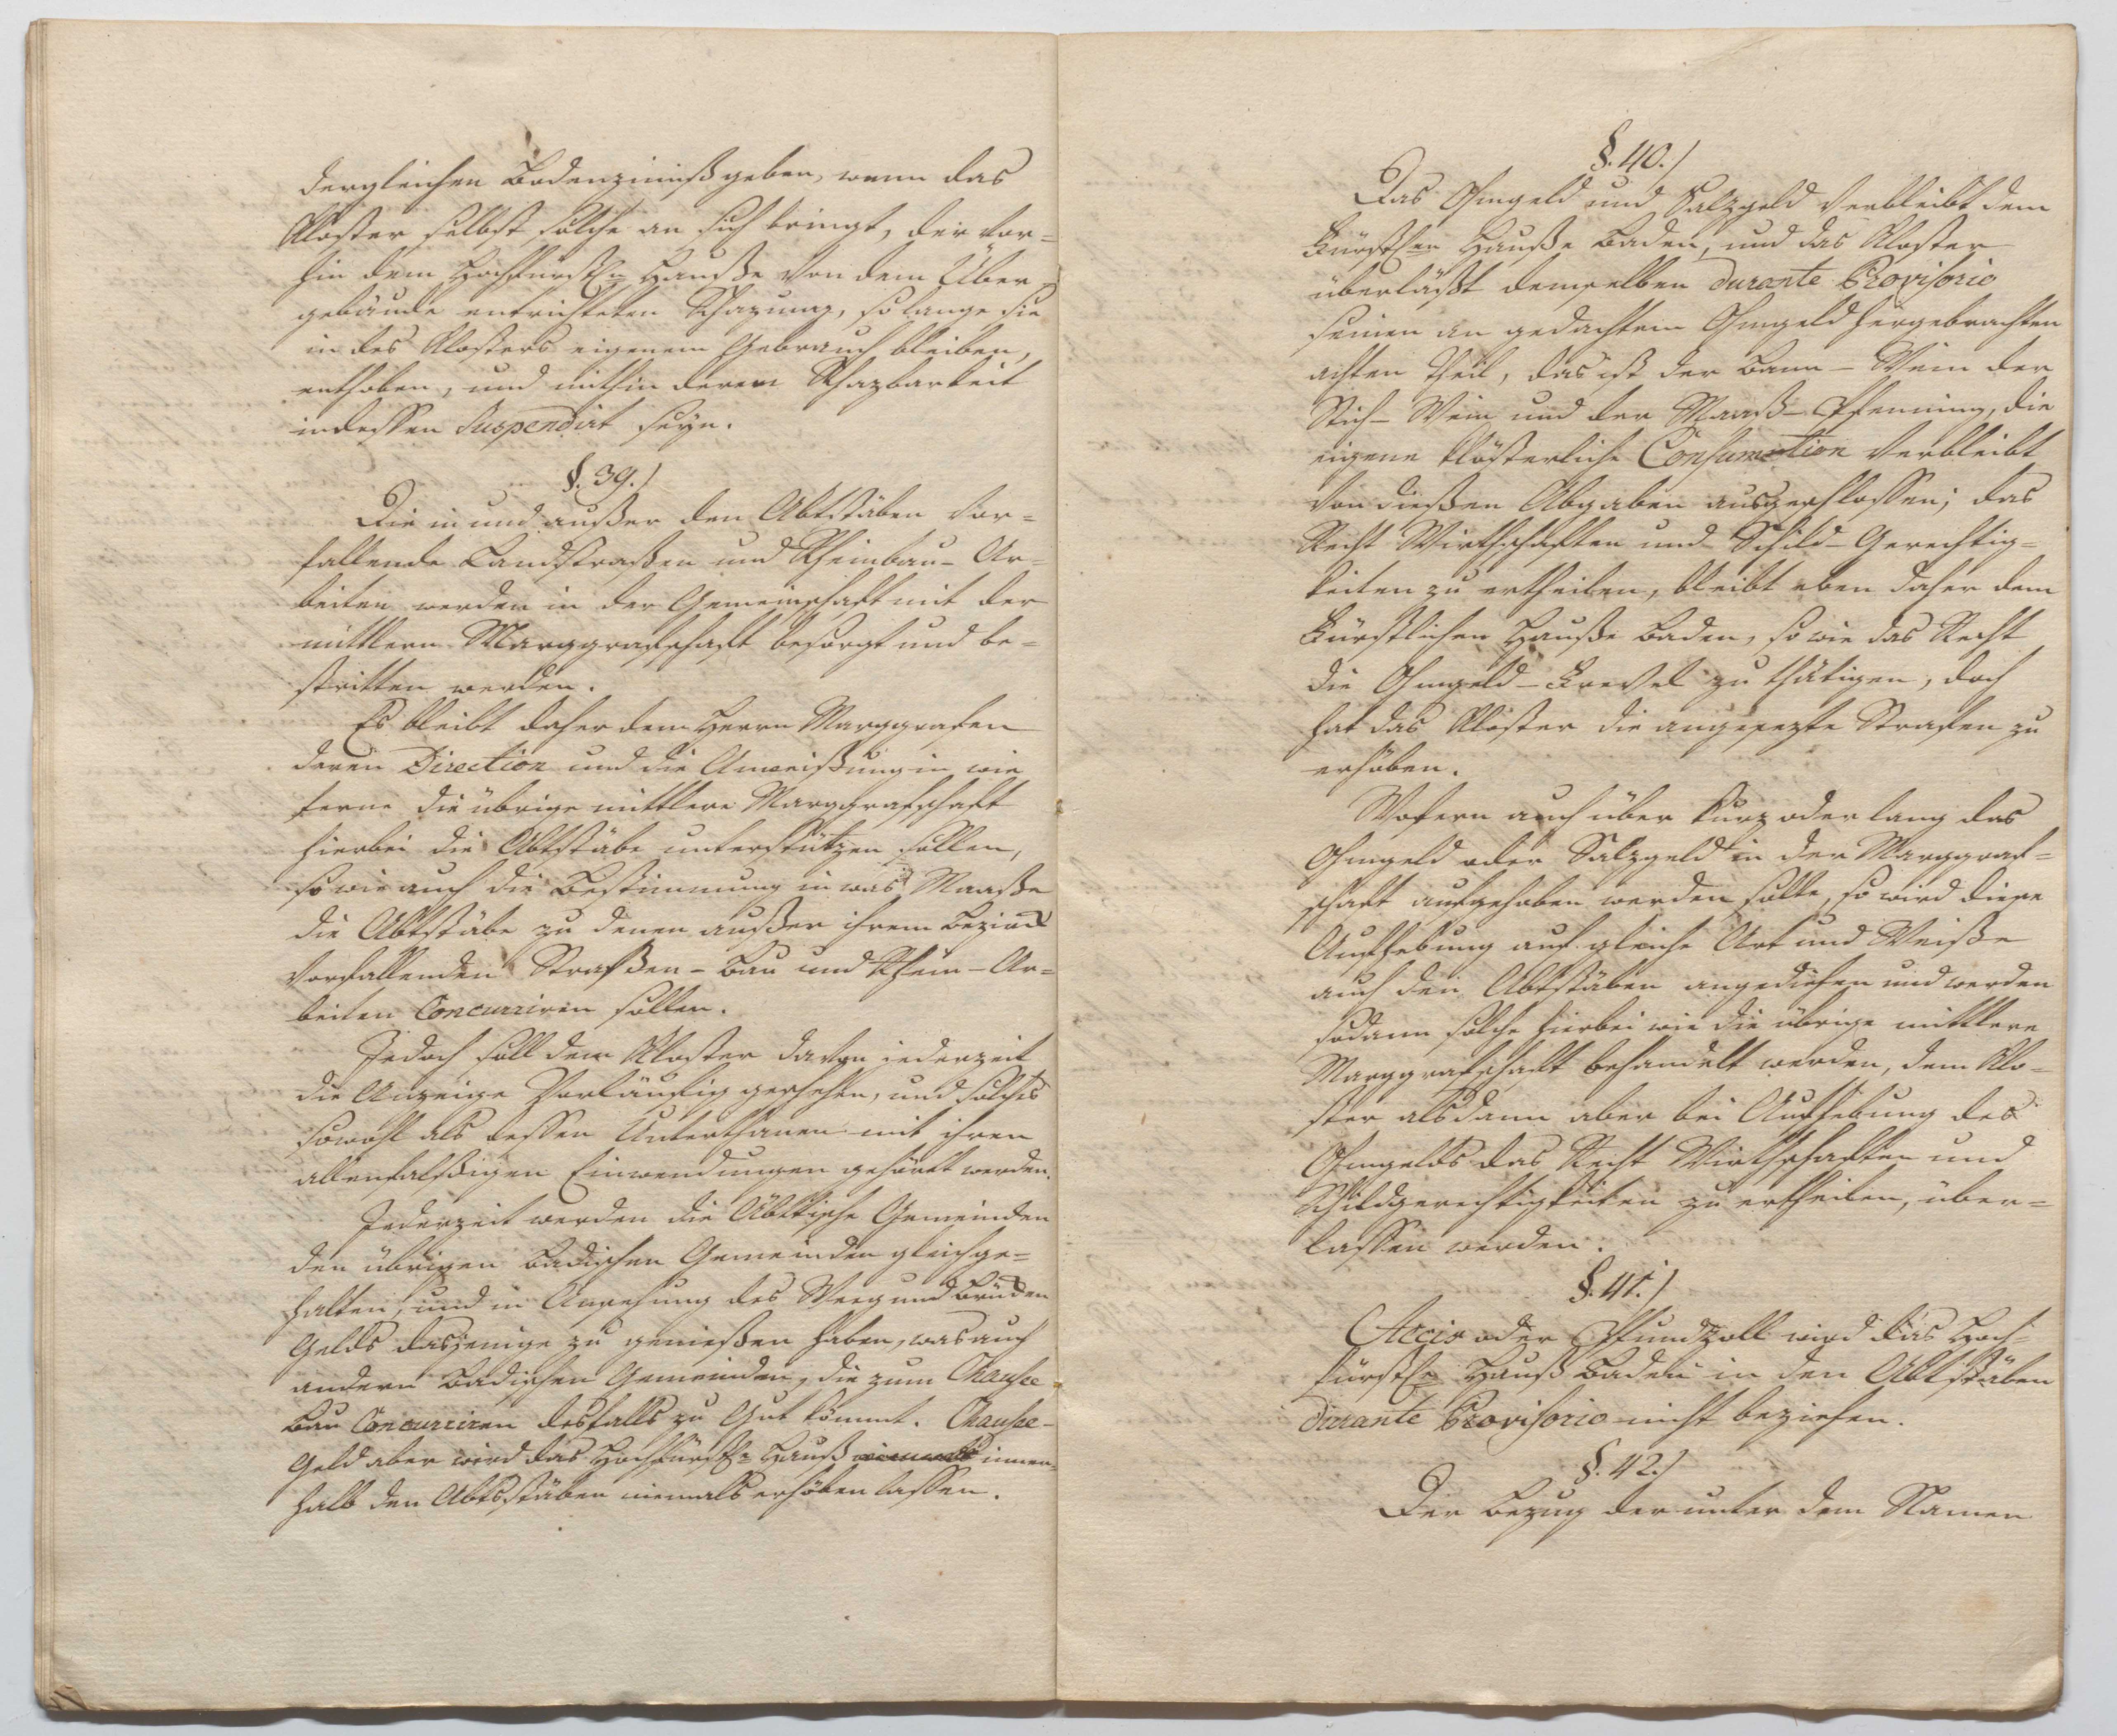 dergleichen Bodenzinnß geben, wenn das
Kloster selbst solche an sich bringt, der vor-
hin dem Hochfürstln Hauße von dem Über-
gebäude entrichteten Schazung, so lange sie
in des Klosters eigenem Gebrauch bleiben,
enthoben, und mithin deren Schazbarkeit
indessen Suspendirt seyn.
§. 39.)
Die in und außer den Abtstäben vor-
fallende Landstraßen und Rheinbau-Ar-
beiten werden in der Gemeinschaft mit der
mittlern Marggrafschaft besorgt und be-
stritten werden.
Es bleibt daher dem Herrn Marggrafen
deren Direction und die Anweißung in wie
ferne die übrige mittlere Marggrafschaft
hierbei die Abtstäbe unterstützen sollen,
so wie auch die Bestimmung in was Maaße
die Abtstäbe zu denen außer ihrem Bezirck
vorfallenden Straßen-Bau und Rhein-Ar-
beiten Concurriren sollen.
Jedoch soll dem Kloster davon iederzeit
die Anzeige vorläufig geschehen, und solches
sowohl als dessen Unterthanen mit ihren
allenfalßigen Einwendungen gehöret werden.
Jederzeit werden die Äbtische Gemeinden
den übrigen Badischen Gemeinden gleichge-
halten, und in Ansehung des Weeg und Brücken
Gelds dasjenige zu genießen haben, was auch
andern Badischen Gemeinden, die zum Chausee
Bau Concurriren desfalls zu Gut kömmt. Chausee-
Geld aber wird das Hochfürstl. Hauß innen-
halb den Abtsstäben niemals erhöben lassen.
§. 40.)
Das Ohmgeld und Salzgeld verbleibt dem
Fürstlen Hauße Baden, und das Kloster
überläßt demselben durante Provisorio
seinen an gedachtem Ohmgeld hergebrachten
achten Theil, das ist der Bann-Wein der
Stich-Wein und der Maaß-Pfenning, die
eigene klösterliche Consumtion verbleibt
von dießen Abgaben ausgeschlossen; das
Recht Wirthschaften und Schild-Gerechtig-
keiten zu ertheilen, bleibt eben daher dem
Fürstlichen Hauße Baden, so wie das Recht
die Ohmgeld-Frevel zu thätigen, doch
hat das Kloster die angesezte Strafen zu
erhöben.
Wofern auch über kurz oder lang das
Ohmgeld oder Salzgeld in der Marggraf-
schaft aufgehoben werden sollte, so wird diese
Aufhebung auf gleiche Art und Weiße
auch den Abtstäben angediehen und werden
sodann solche hierbei wie die übrige mittlere
Marggrafschaft behandelt werden, dem Klo-
ster alsdann aber bei Aufhebung des
Ohmgelds das Recht Wirthschaften und
Schildgerechtigkeiten zu ertheilen, über-
lassen werden.
§. 41.)
Accis oder Pfundzoll wird das Hoch-
fürstle Hauß Baden in den Abtstäben
durante Provisorio nicht beziehen.
§. 42.)
Der Bezug der unter dem Namen